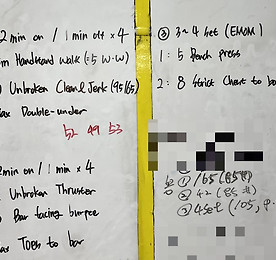 2 min on / 1 min off × 4
m Handstand walk (:5 W.W)
Unbroken Clean & Jerk (95/65)
ax Double-under
52 49 53
2min on / 1 min × 4
Unbroken Thruster
Bar facing burpee
ax Toes to bar
③ 3~4 set (EMOM)
1 : 5 Bench press
2 : 8 Strict Chest to ba
① /65 (85#)
② 42 (85 #)
③ 4set (105,